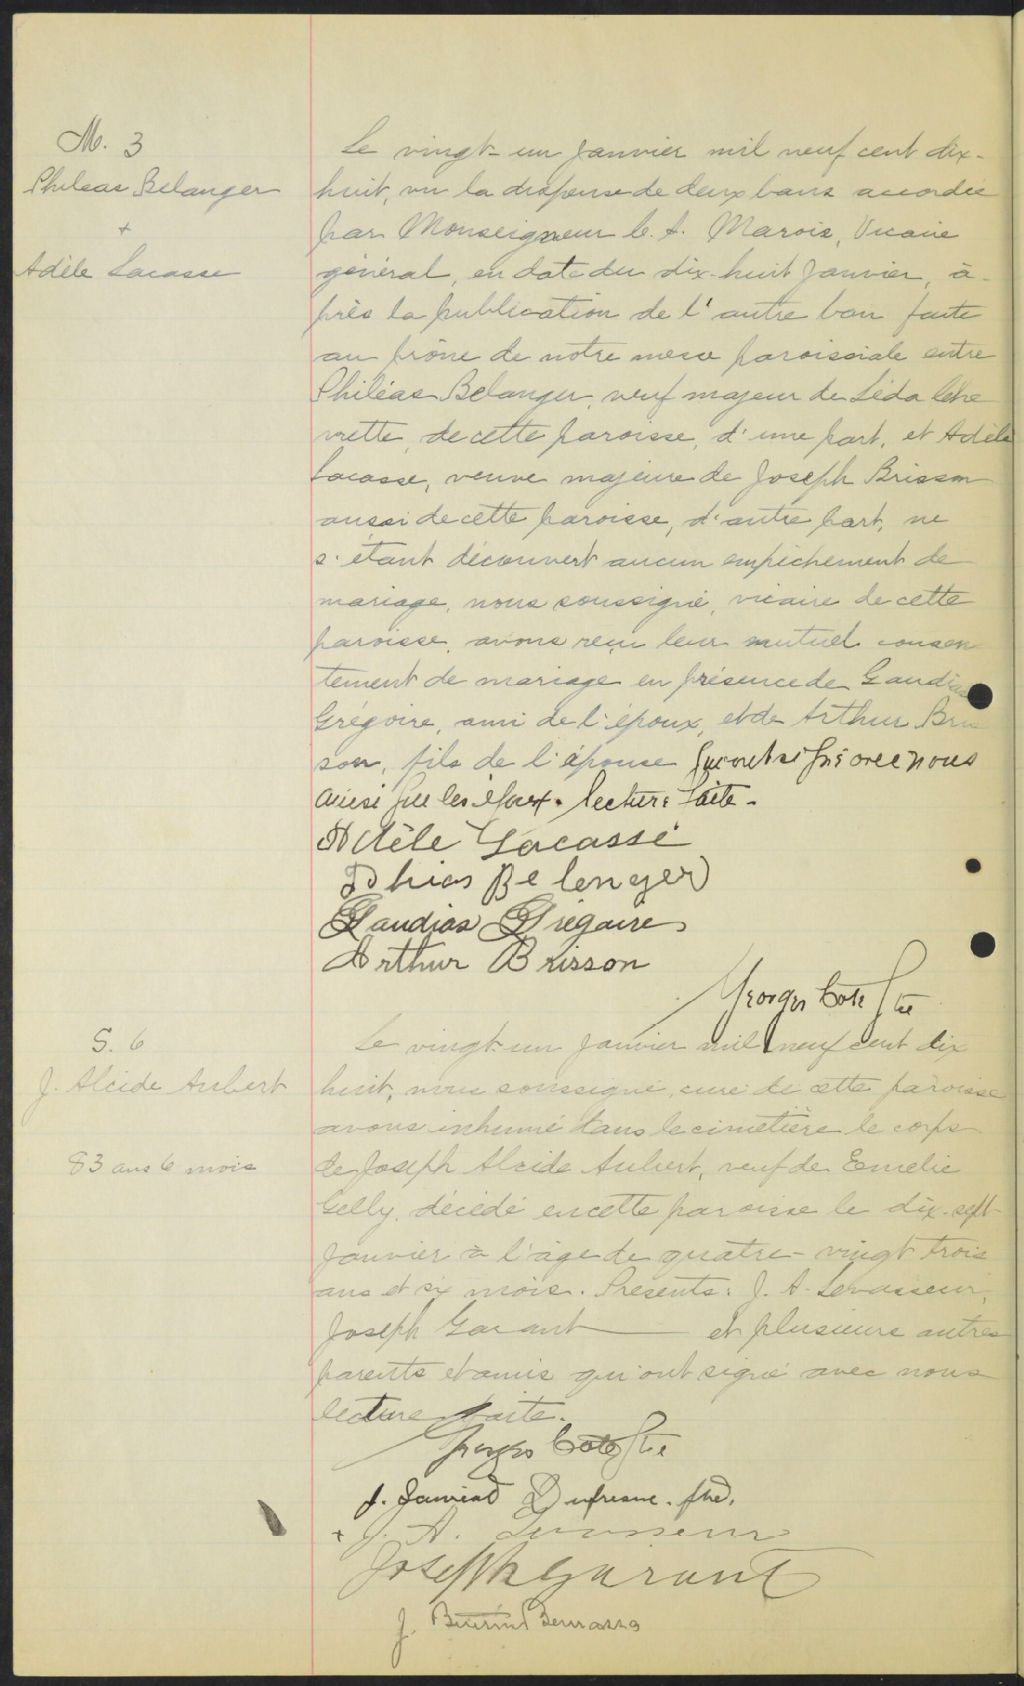 M. 3
Phileas Belanger
+
Adèle Lacasse
Le vingt-un janvier mil neuf cent dix-
huit, vu la dispense de deux bans accordée
par Monseigneur C. A. Marois, Vicaire
général, en date du dix-huit janvier, a-
près la publication de l'autre ban faite
au prône de notre messe paroissiale entre
Philéas Belanger, veuf majeur de Léda Che
vrette, de cette paroisse, d'une part, et Adèle
Lacasse, veuve majeure de Joseph Brisson
aussi de cette paroisse, d'autre part, ne
s'étant découvert aucun empêchement de
mariage, nous soussigné, vicaire de cette
paroisse, avons reçu leur mutuel consen
tement de mariage en présence de Gaudias
Grégoire, ami de l'époux, et de Arthur Bris
son, fils de l'épouse qui ont signé avec nous
ainsi que les époux. lecture faite.
Adèle Lacasse
Phias Belenger
Gaudias Grégoire
Arthur Brisson
Georges Cote Ptre
S. 6
J. Alcide Aubert
83 ans 6 mois
Le vingt-un janvier mil neuf cent dix
huit, nous soussigné, curé de cette paroisse
avons inhumé dans le cimetière le corps
de Joseph Alcide Aubert, veuf de Emelie
Gelly, décédé en cette paroisse le dix-sept
janvier à l'âge de quatre-vingt trois
ans et six mois. Présents: J. A. Levasseur,
Joseph Garant et plusieurs autres
parents et amis qui ont signé avec nous
lecture faite.
Georges Cote Ptre
J. Dufresne. ptre.
+ J. A. Levasseur
Joseph Garant
J.